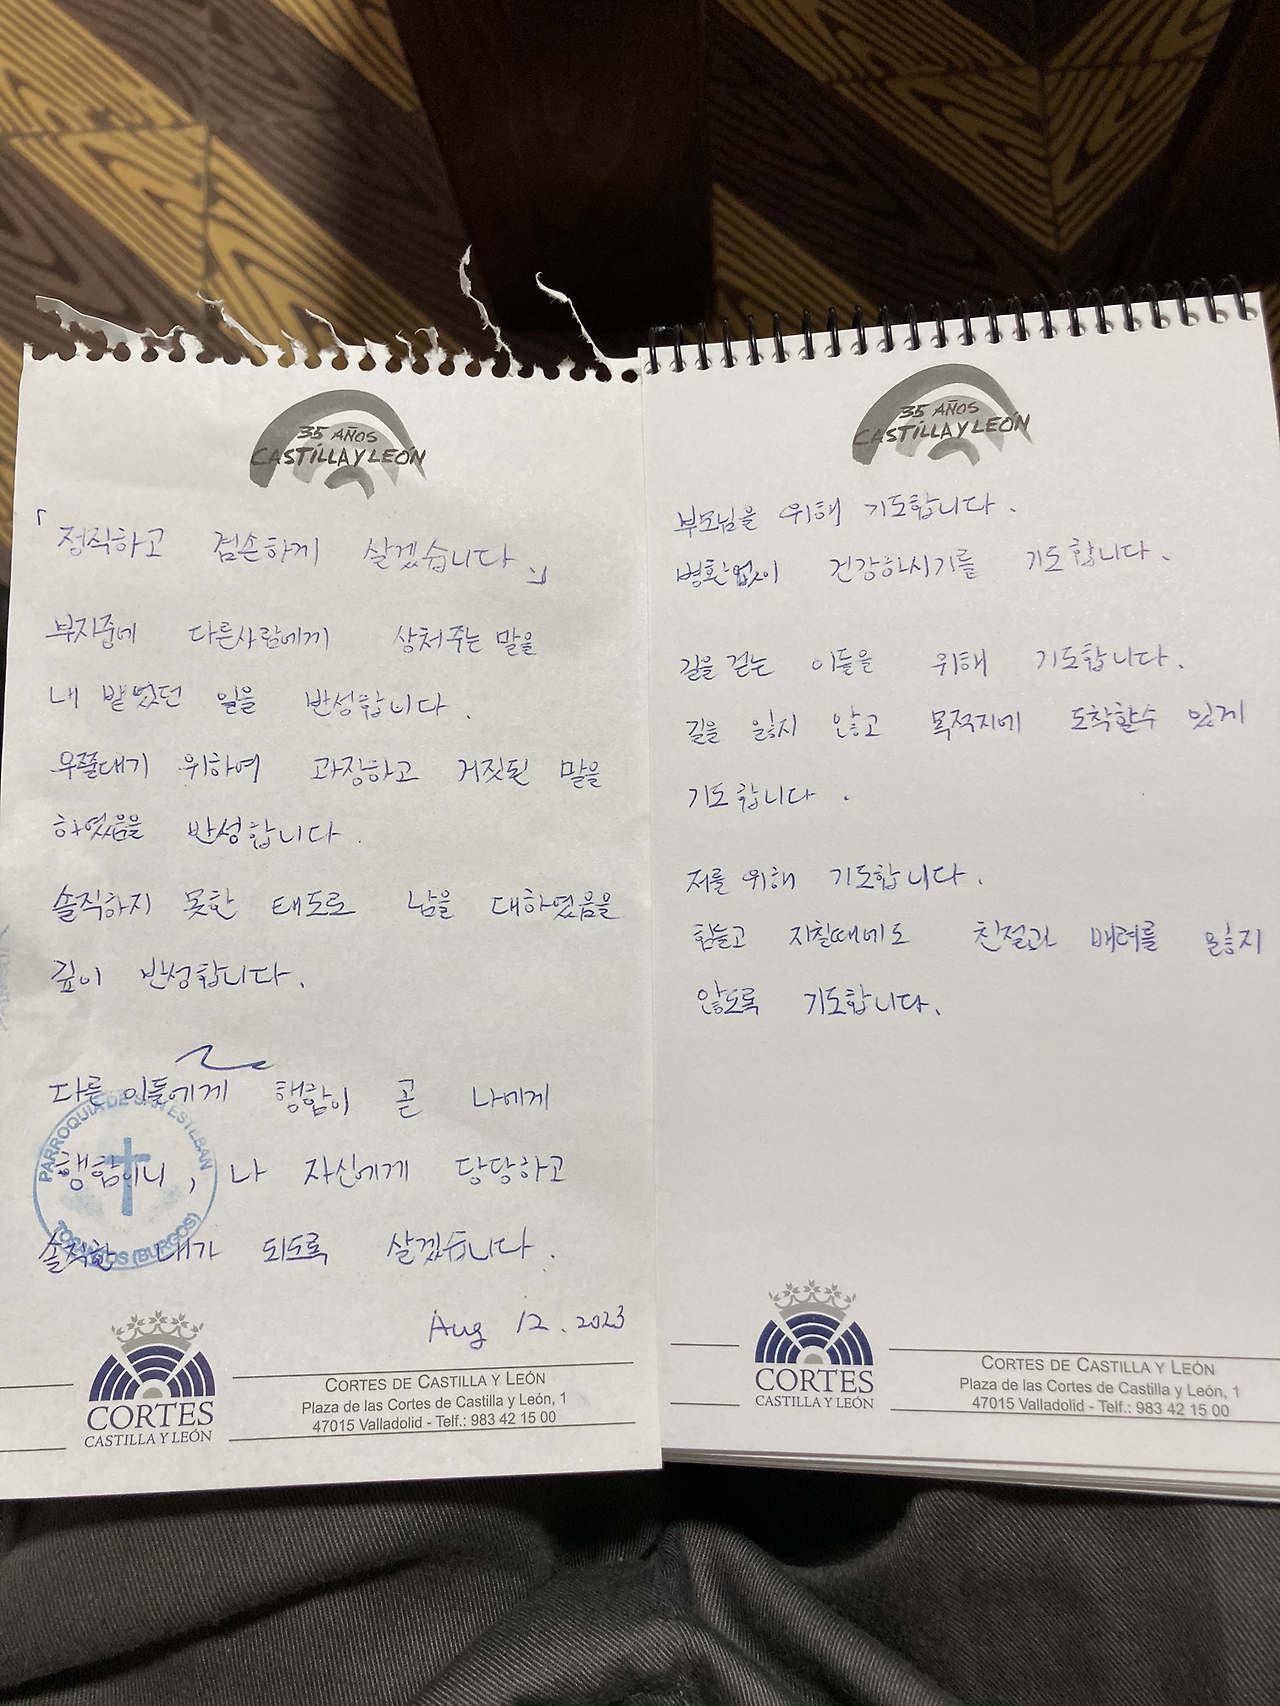 35 AÑOS
CASTILLA Y LEÓN
「정직하고 겸손하게 살겠습니다」
부지중에 다른사람에게 상처주는 말을
내 뱉었던 일을 반성합니다.
우쭐대기 위하여 과장하고 거짓된 말을
하였음을 반성합니다.
솔직하지 못한 태도로 남을 대하였음을
깊이 반성합니다.
다른 이들에게 행함이 곧 나에게
행함이니, 나 자신에게 당당하고
솔직한 내가 되도록 살겠습니다.
Aug 12. 2023
PARROQUIA DE SAN ESTEBAN
(BURGOS)
CORTES
CASTILLA Y LEÓN
CORTES DE CASTILLA Y LEÓN
Plaza de las Cortes de Castilla y León, 1
47015 Valladolid - Telf.: 983 42 15 00
35 AÑOS
CASTILLA Y LEÓN
부모님을 위해 기도합니다.
병환없이 건강하시기를 기도합니다.
길을 걷는 이들을 위해 기도합니다.
길을 잃지 않고 목적지에 도착할수 있게
기도합니다.
저를 위해 기도합니다.
힘들고 지칠때에도 친절과 배려를 잃지
않도록 기도합니다.
CORTES
CASTILLA Y LEÓN
CORTES DE CASTILLA Y LEÓN
Plaza de las Cortes de Castilla y León, 1
47015 Valladolid - Telf.: 983 42 15 00